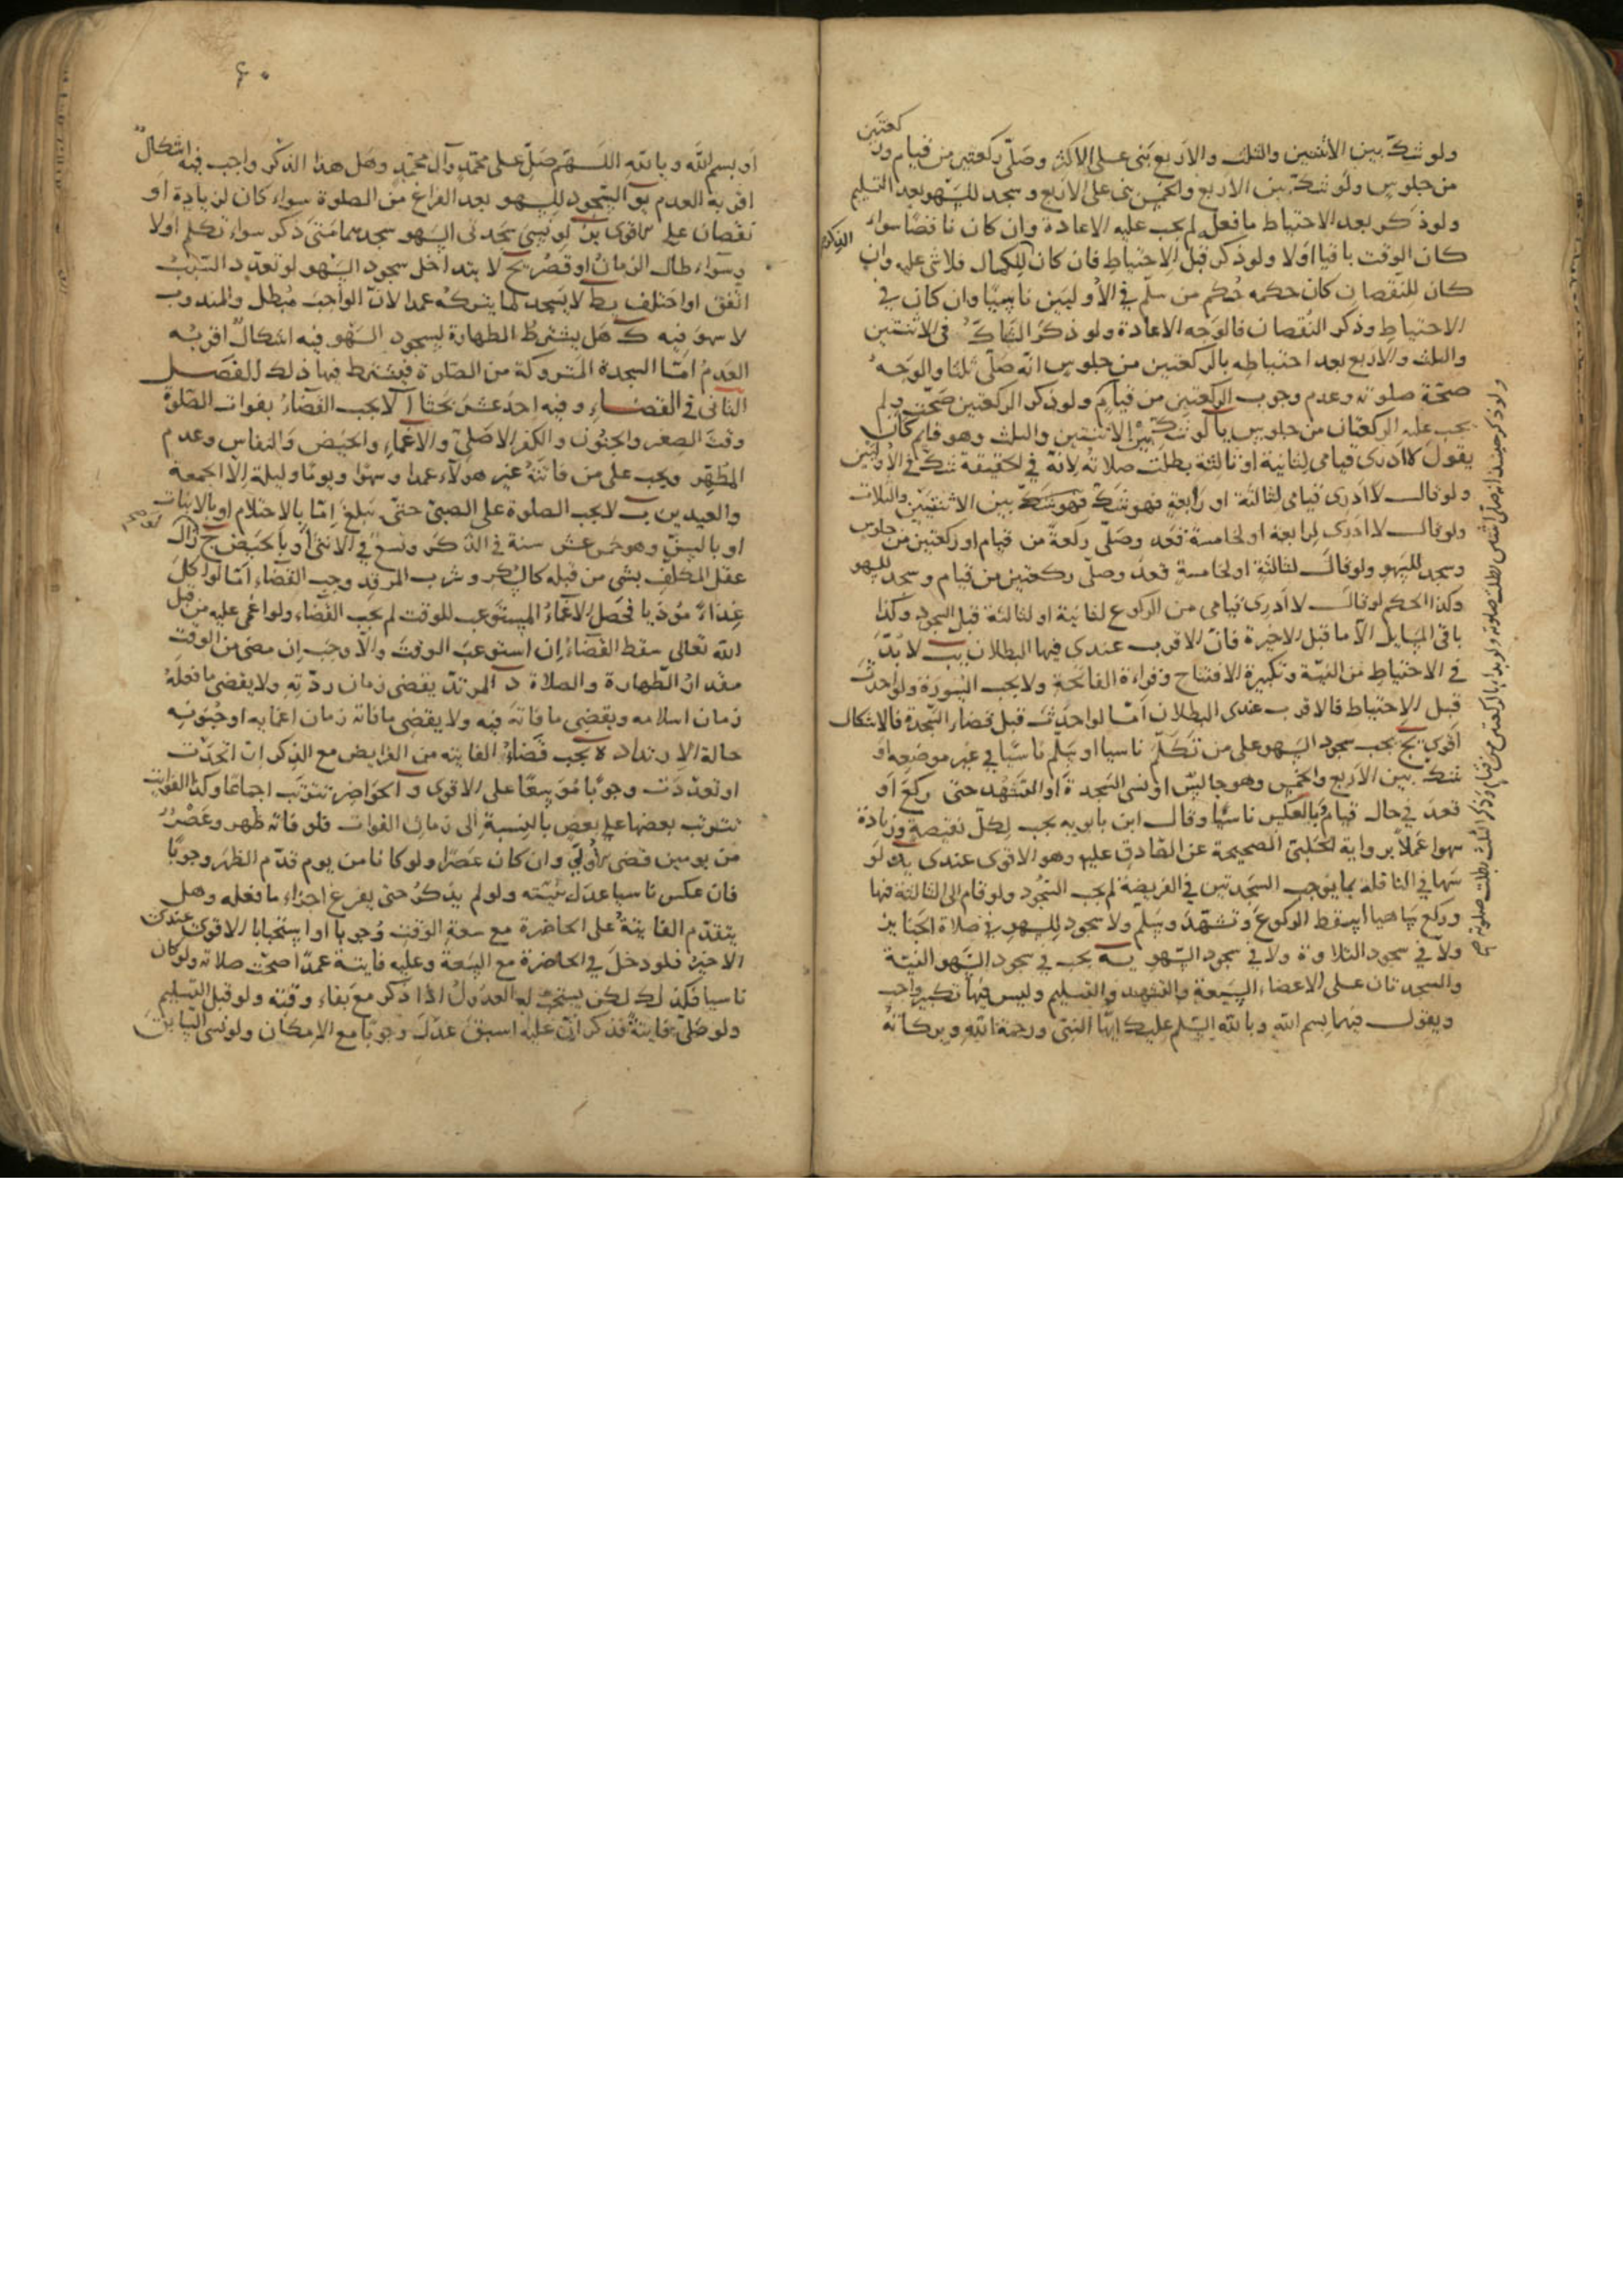 ولو شكّ بين الاثنتين والثلث والاربع بنى على الاكثر وصلّى ركعتين من قيام وركعتين
من جلوس ولو شكّ بين الاربع والخمس بنى على الاربع وسجد للسهو بعد التسليم
ولو ذكر بعد الاحتياط ما فعله لم يجب عليه الاعادة وان كان ناقصًا سواء
كان الوقت باقيا اولا ولو ذكر قبل الاحتياط فان كان للكمال فلا شى عليه وان
كان للنقصان كان حكمه حُكم من سلّم في الاُوليَين ناسِيًا وان كان في
الاحتياطِ وذكر النقصان فالوَجه الاعادة ولو ذكر الشاكّ فى الاثنتين
والثلث والاربع بعد احتياطه بالركعتين من جلوس انّه صَلّى ثلثا والوَجهُ
صحّة صلوته وعدم وجوب الركعتين من قيامٍ ولو ذكر الركعتين صَحّت ولم
يجب عليه الركعتان من جلوس يا لو شكّ بَيْن الاثنتين والثلث وهو قايم كان
يقولَ لا ادرى قيامى لثانية او ثالثة بطلَت صلاتهُ لانّه في الحقيقة شكّ في الاُوليين
ولو قال لا ادرى قيامى لثالثة او رابعةٍ فهو شكّ بين الاثنتيَن والثلاث
ولو قال لا ادرى لرابعة او لخامسة قعد وصَلّى ركعةً من قيام او ركعتين من جلوس
وسجد للسهو ولو قالَ لثالثةٍ او لخامسةٍ قعدَ وصلّى ركعتين من قيام وسجد للسهو
وكذا الحكم لو قال لا ادرى قيامى من الركوع لثانية او لثالثة قبل السجود وكذا
باقى المسايل الا ما قبل الاخيرة فانّ الاقرب عندى فيها البطلان يب لا بُدّ
في الاحتياط من النيّة وتكبيرة الافتتاح وقراءة الفاتحة ولا يجب السورة ولو احدث
قبل الاحتياط فالاقرب عندى البطلان امّا لو احدث قبل قضاء السجدة فالاشكال
اقوى يج يجب سجود السهو على من تكلّم ناسيا او سلّم ناسيًا في غير موضعه او
شكّ بين الاربع والخمس وهو جالس او نسى السجدة او التشهد حتى ركع او
قعدَ في حال قيام او بالعكس ناسيًا وقال ابن بابويه يجب لكلّ نقيصة وزيادة
سهوا عملاً برواية الحلبى الصحيحة عن الصّادق عليه وهو الاقوى عندى يد لو
سَها في النافلة بما يوجب السجدتين في الفريضة لم يجب السّجُود ولو قام الى الثالثة فيها
وركع ساهيا اسقط الركوعَ وتشهّدَ وسَلّم ولا سجود للسهو في صلاة الجنايز
ولا في سجود التلاوة ولا في سجود السّهو يه يجب في سجود السّهو النيّة
والسجدتان على الاعضاء السّبعة والتشهد والتسليم وليس فيها تكبير واجب
ويقول فيهما بسم اللهِ وبالله السّلم عليك ايّها النبىّ ورحمة اللهِ وبركاتهُ
٤٠
او بسم اللّه وبالله اللّهم صَلّ على محمّدٍ وآل محمّدٍ وهَل هذا الذكر واجب فيه اشكالٌ
اقربه العدم يو السّجود للسهو بعد الفراغ من الصلوة سواء كان لزيادة او
نقصان على الاقوى يز لو نسِىَ سجدتى السّهو سجدهما متى ذكر سواء تكلّم اولا
وسواء طال الزمانُ او قصُر يح لا يتداخل سجود السّهو لو تعدّد السّببُ
اتّفق او اختلف يط لا يَسجد لما يتركهُ عمدا لانّ الواجبَ مُبطل والمندوب
لا سهوَ فِيه ك هَل يشترطُ الطهارة لسجود السّهو فيه اشكالٌ اقربُه
العَدمُ امّا السجدة المَتروكة من الصّلوة فيشترط فيها ذلك الفصل
الثانى في القضاءِ وفيه احدَ عشرَ بحثا ا لا يجب القضَاءُ بفوات الصّلوة
وقتَ الصِغر والجنون والكفر الاصلىّ والاغماءِ والحيض والنفاس وعدم
المطَهِّر ويجب على من فاتَتهُ غير هولآء عمدا وسهوًا ونومًا وليلة الّا الجمعة
والعيدين ب لا يجب الصلوة على الصبىّ حتّى يَبلغَ اِمّا بالاحتلام او بالانبات
او بالسنّ وهو خمس عشر سنة في الذّكر وتسع في الانثى او بالحيض ج لو زال
عقل المكلّف بشى من قِبله كالسُكر وشرب المرقِد وجب القضاء امّا لو اكلَ
غذاءً مُوذيا فحَصل الاغماءُ المستوعب للوقت لم يجب القضاء ولو اغمى عليه من قبل
الله تعالى سقط القضَاءُ ان استوعبَ الوقتَ والّا وجبَ ان مضى من الوقت
مقدارُ الطّهارة والصلاة د المرتدّ يقضى زمان ردّتِه ولا يقضى ما فعلهُ
زمان اسلامه ويقضى ما فاتهُ فِيه ولا يقضى ما فاته زمان اغمايه او جُنونِه
حالة الارتداد ه يجب قَضاءُ الفايته من الفرايض مع الذكر ان اتحدَت
او تعدّدَت وجوبًا مُوَسعًا على الاقوى و الحواضر تترتّب اجماعًا وكذا الفوايت
تترتّب بعضها على بعضٍ بالنِسبة الى زمان الفوات فلو فاته ظُهر وعَصْرٌ
من يومين قضى الاُولَى وان كان عصرًا ولو كانا من يوم قدّم الظهَر وجوبًا
فان عكس ناسيا عدَل بنيّته ولو لم يذكرُ حتى يفرغ اجزاء ما فعله وهل
يتقدّم الفايتةُ على الحاضرة مع سعةِ الوَقتِ وُجوبا او استحبابا الاقوى عندى
الاخيرُ فلو دخلَ في الحاضرة مع السّعة وعليه فايتة عمدًا صحّت صلاته ولو كان
ناسيا فكذلك لكن يستحبّ له العدُولُ اذا ذكر مع بَقاء وقته ولو قبل التسليم
ولو صَلّى فايتةً فذكر انّ عليه اسبقَ عدَل وجوبًا مع الامكان ولو نسى السّابقَ